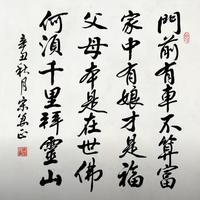 門前有車不算富
家中有娘才是福
父母本是在世佛
何須千里拜靈山
辛丑秋月